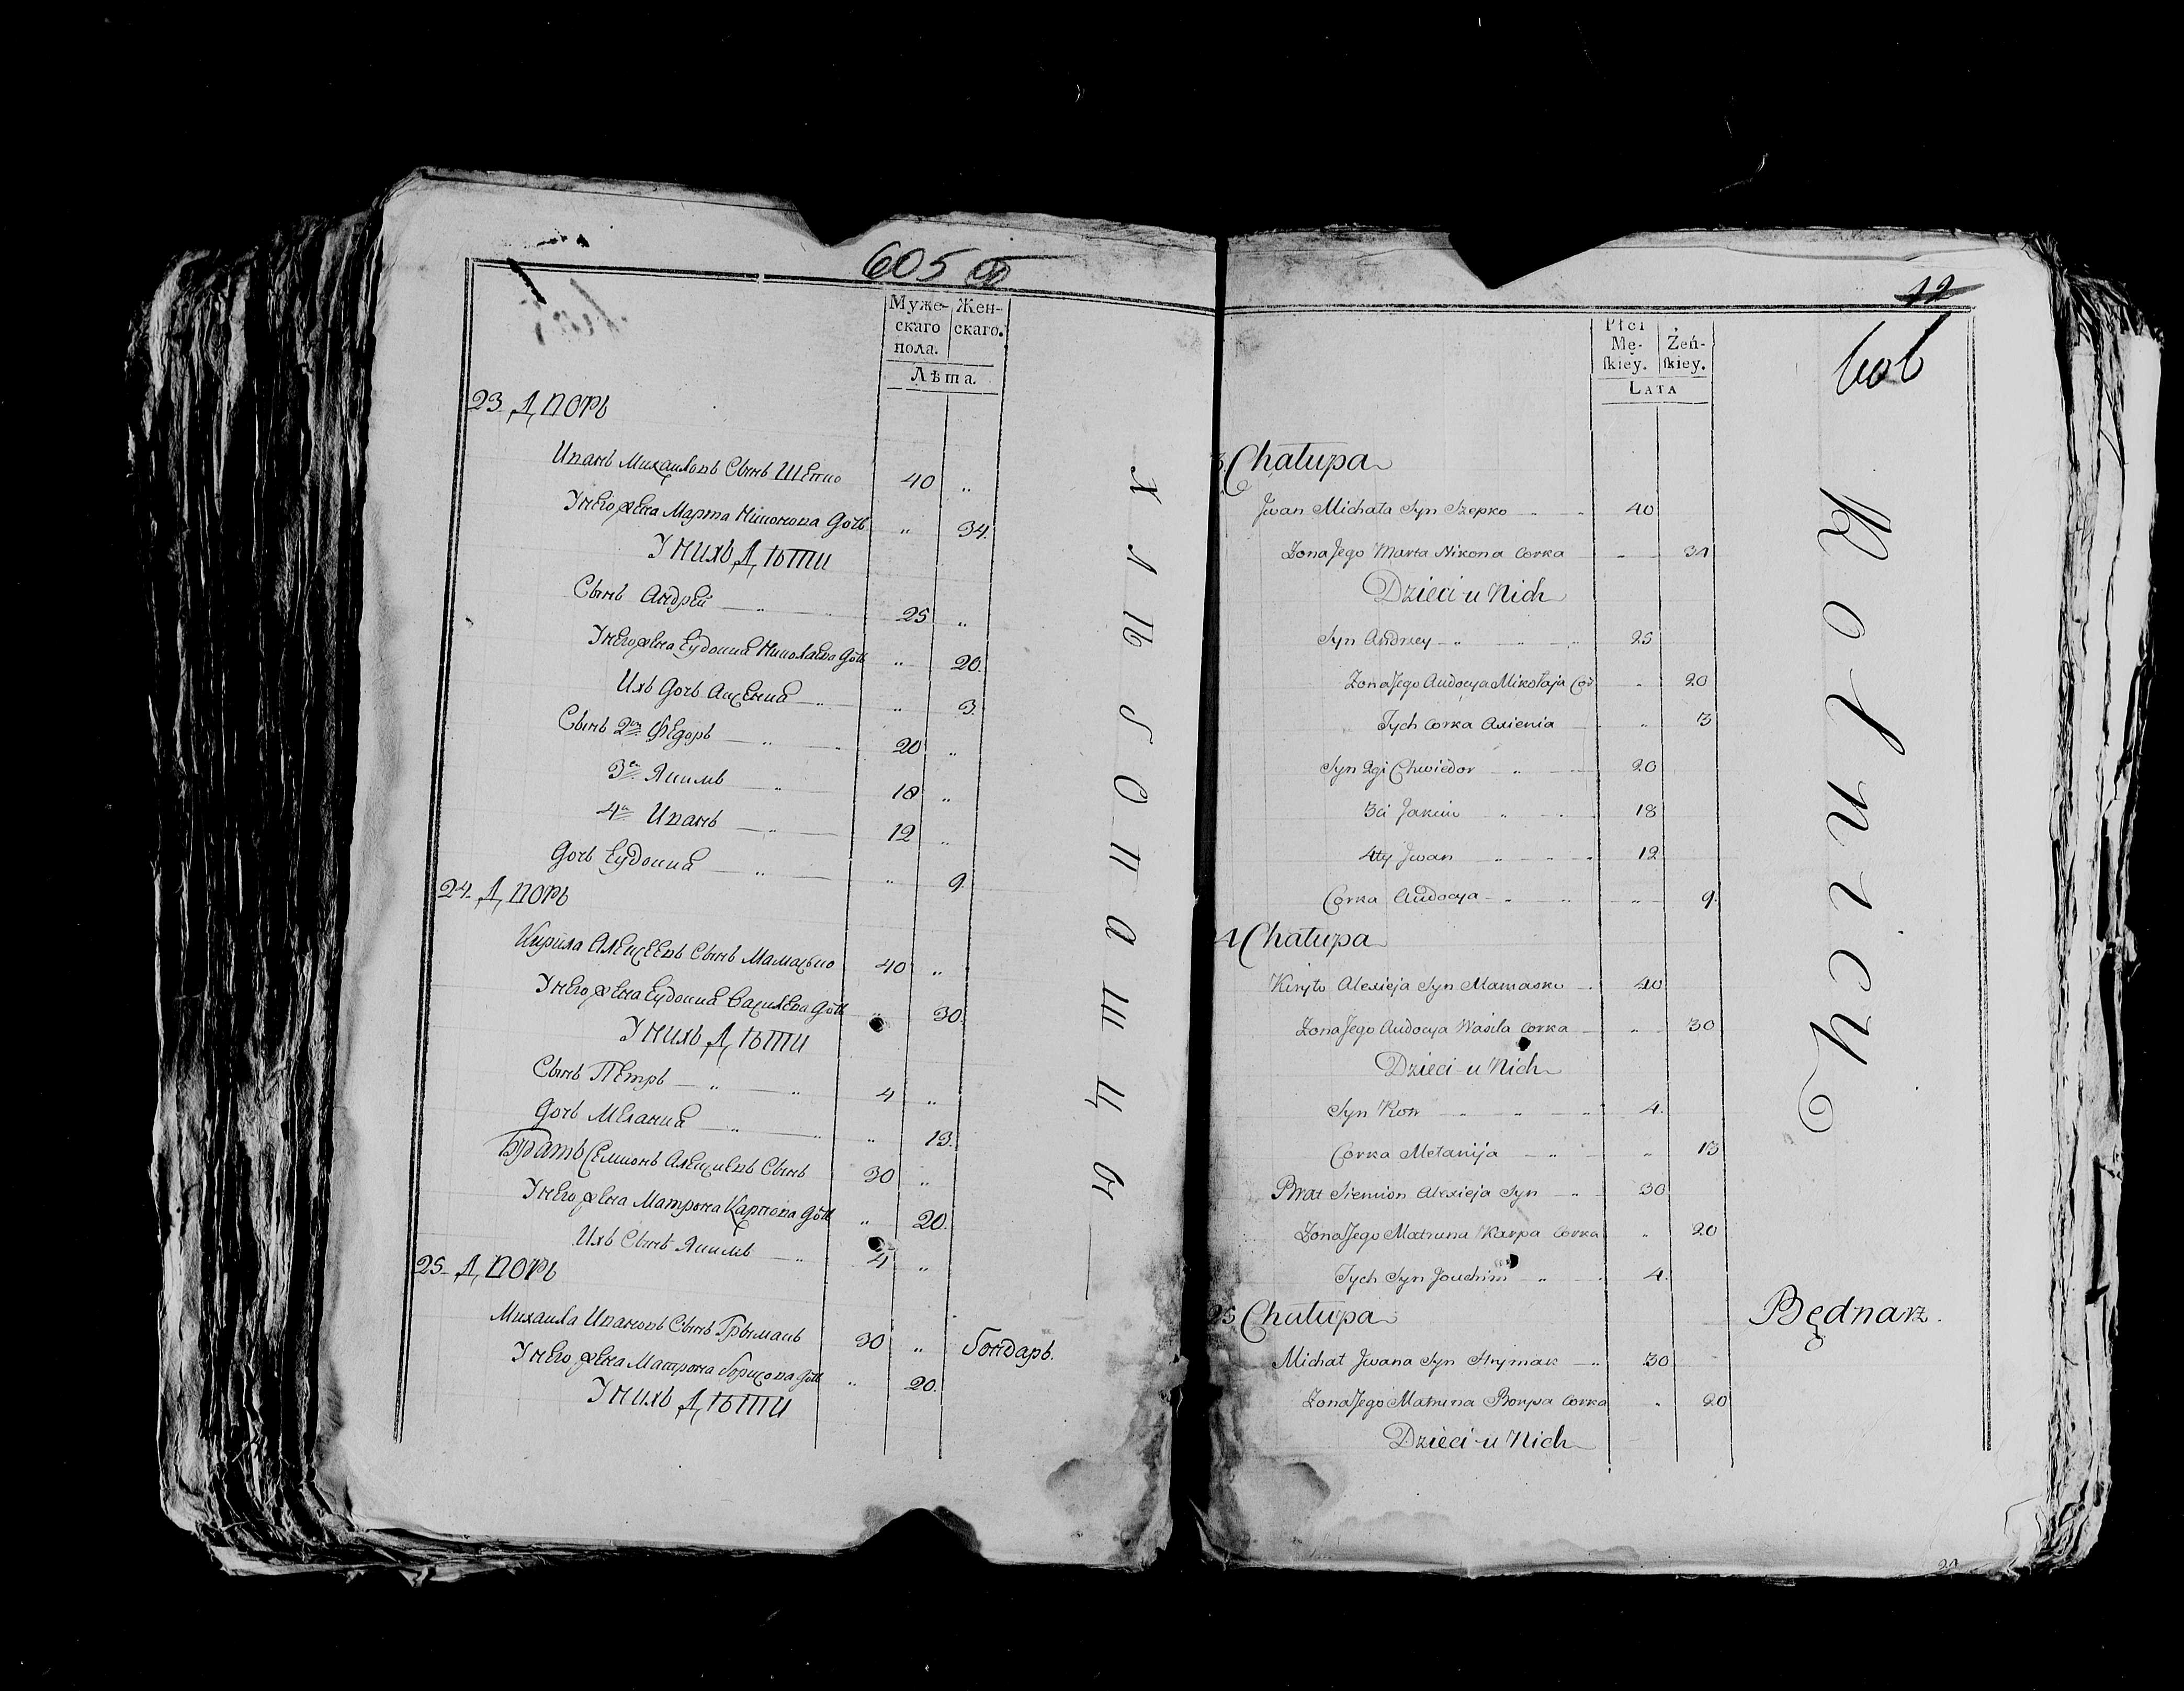 605
Муже-
скаго
пола.
Жен-
скаго.
Лѣта.
23. Дворъ
Иванъ Михаиловъ Сынъ Шепко 40 „
У него жена Марта Никонова дочь „ 34.
У нихъ Дѣти
Сынъ Андрей 25 „
У него жена Еудокия Николаева дочь „ 20.
Ихъ дочь Аксения „ 3.
Сынъ 2й Федоръ 20 „
3й Якимъ 18 „
4й Иванъ 12 „
Дочь Еудокия „ 9.
24. Дворъ
Кирила Алексеевъ Сынъ Мамасько 40 „
У него жена Еудокия Василева дочь „ 30.
У нихъ Дѣти
Сынъ Петръ 4 „
Дочь Мелания „ 13.
Братъ Семионъ Алексиевъ Сынъ 30 „
У него жена Матрона Карпова дочь „ 20.
Ихъ Сынъ Якимъ 4 „
25. Дворъ
Михаила Ивановъ Сынъ Грымакъ 30 „ бондарь.
У него жена Матрона Борисова дочь „ 20.
У нихъ Дѣти
12
606
Płci
Mę-
skiey.
Żeń-
skiey.
LATA
3 Chałupa
Jwan Michała Syn Szepko 40
Żona Jego Marta Nikona Corka 34
Dzieci u Nich
Syn Andrzey 25
Żona Jego Audocya Mikołaja Cor „ 20
Tych Corka Axienia „ 3
Syn 2gi Chwiedor 20
3ci Jakim 18
4ty Jwan 12
Corka Audocya „ 9.
4 Chałupa
Kiryło Alexieja Syn Mamasko 40
Żona Jego Audocya Wasila Corka „ 30
Dzieci u Nich
Syn Piotr 4.
Corka Mełanija „ 13
Brat Siemion Alexieja Syn 30
Żona Jego Matruna Karpa Corka „ 20
Tych Syn Jouchim 4.
25 Chałupa
Michał Jwana Syn Hrymak 30
Żona Jego Matruna Borysa Corka „ 20
Dzieci u Nich
Rolnicy
Będnarz.